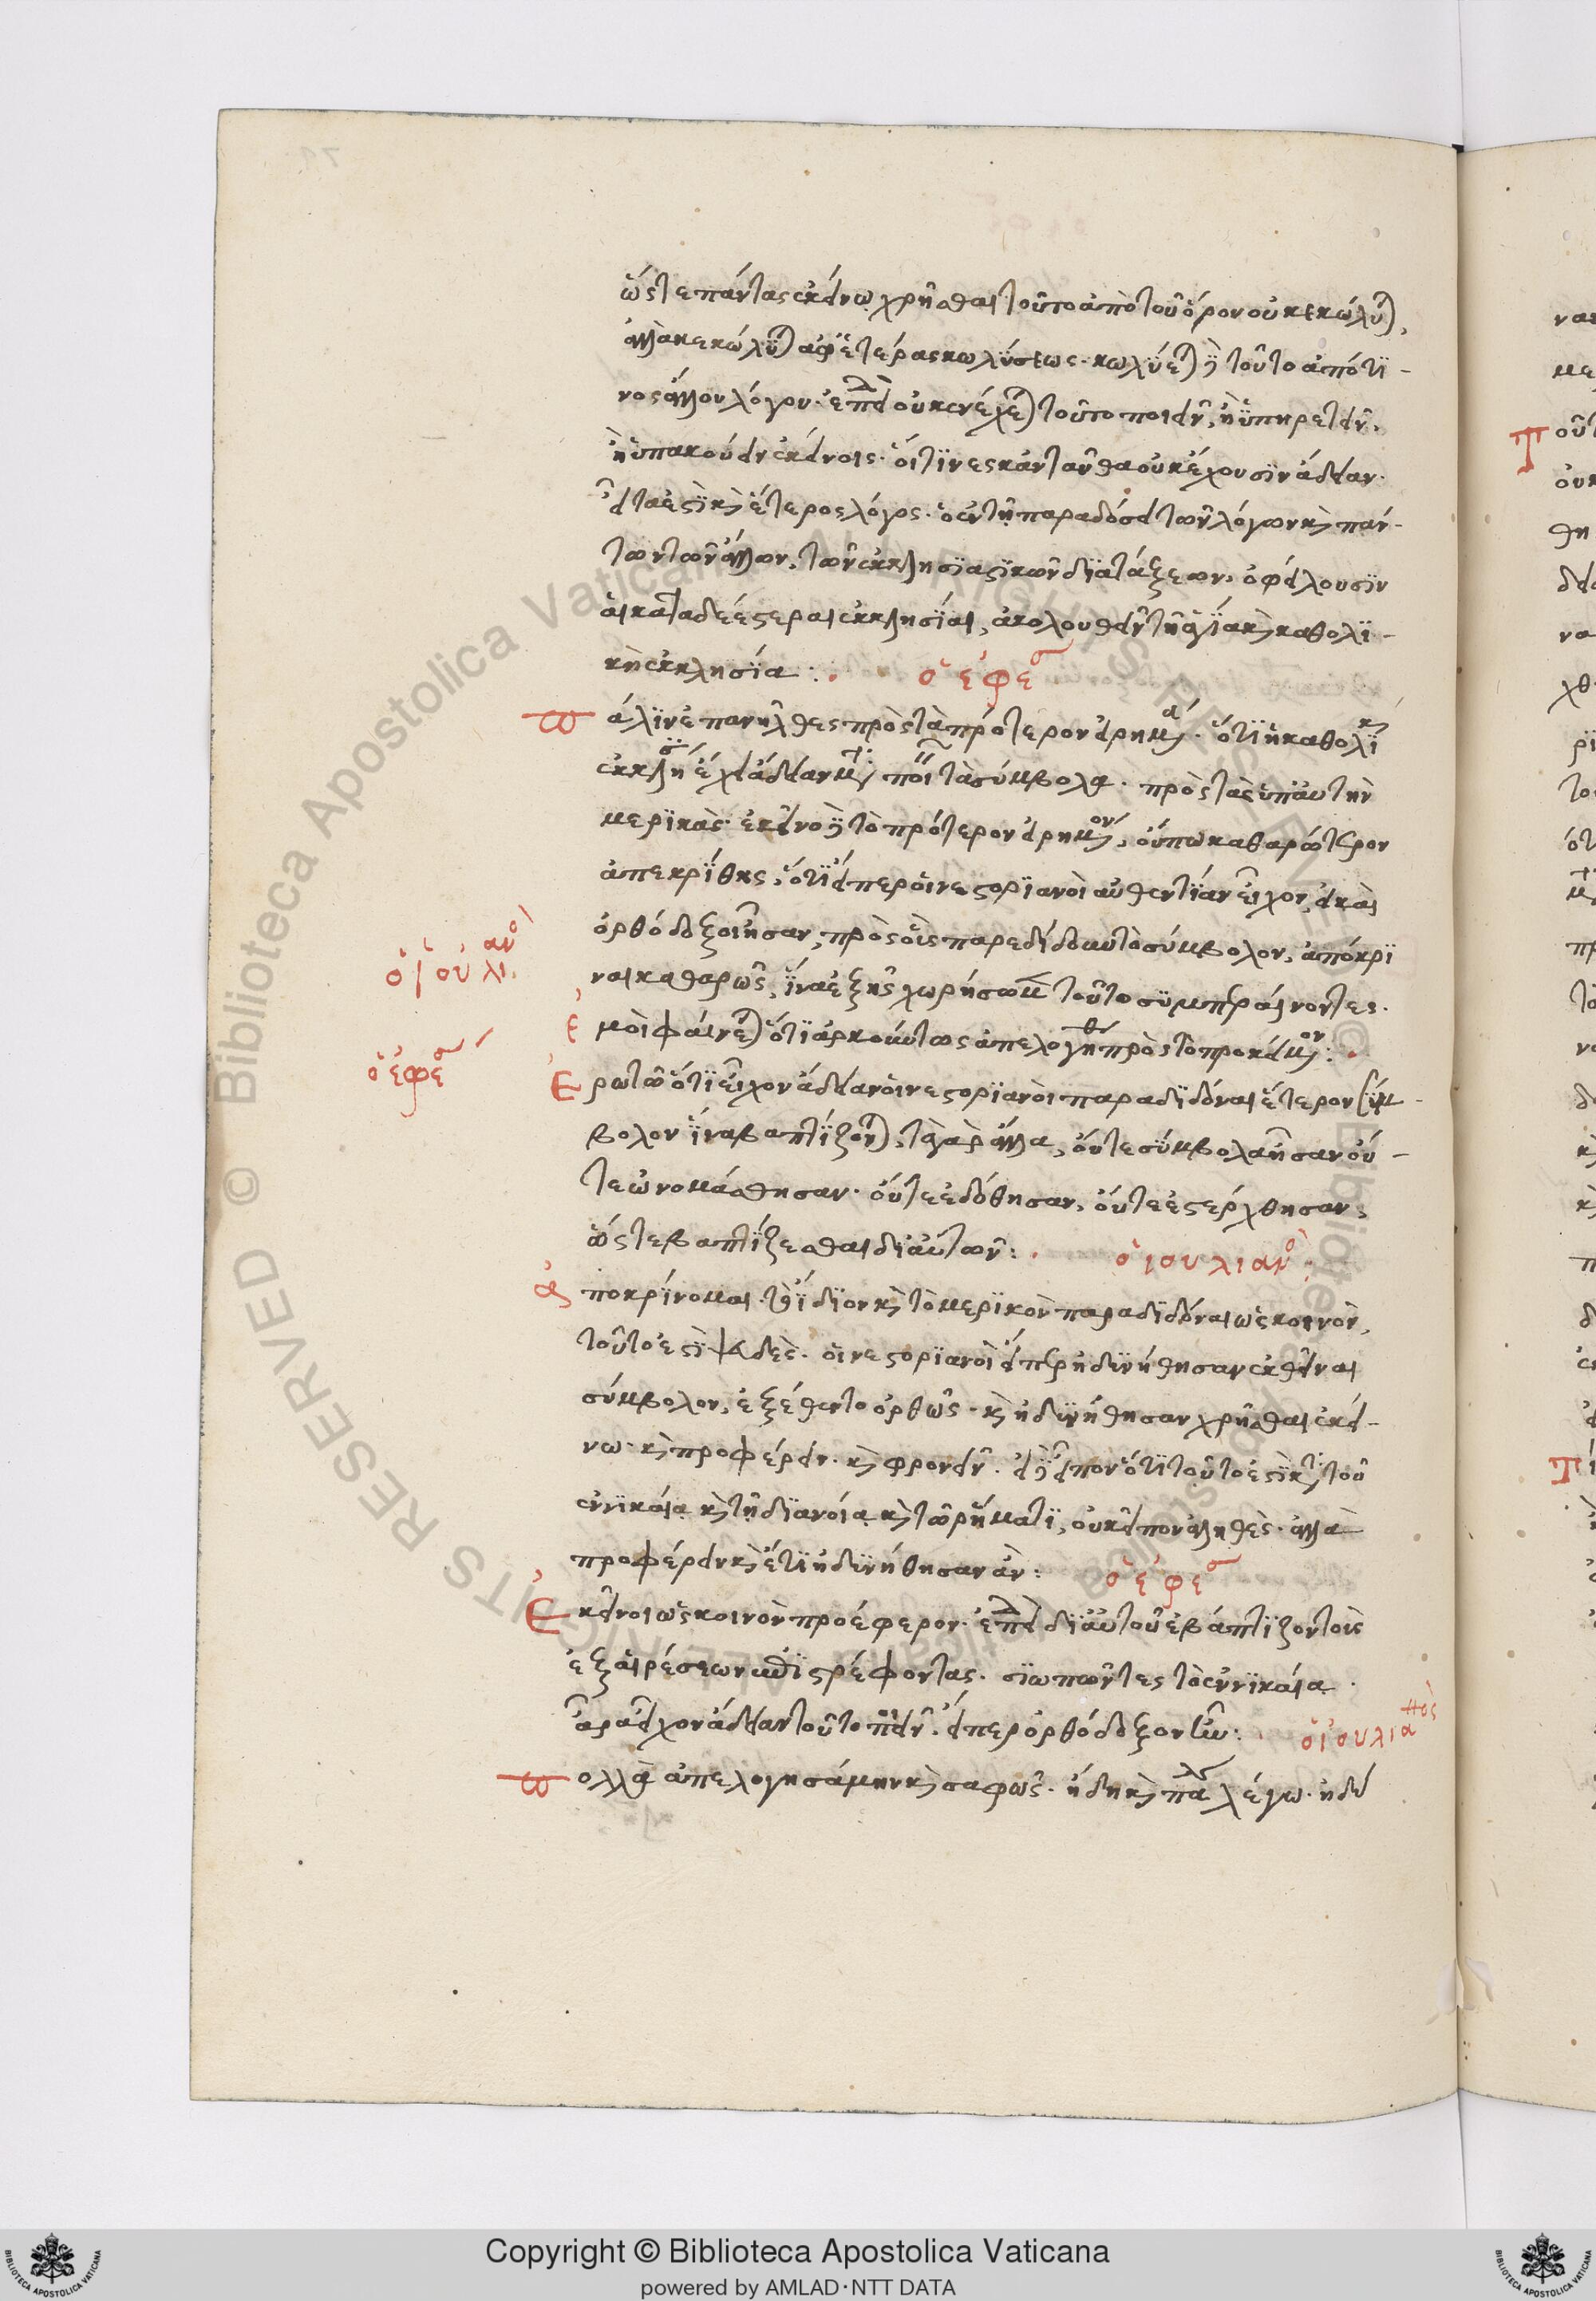 ὥστε πάντας ἐκείνω χρῆσθαι τοῦτο ἀπὸ τοῦ ὅρου οὐ κεκώλυται,
ἀλλὰ κεκώλυται ἀφ' ἑτέρας κωλύσεως. κωλύεται δὲ τοῦτο ἀπό τι-
νος ἄλλου λόγου. ἐπειδὴ οὐκ ἐνέχεται τοῦτο ποιεῖν, ἢ ὑπηρετεῖν,
ἢ ὑπακούειν ἐκείνοις. οἵτινες κἀνταῦθα οὐκ ἔχουσιν ἄδειαν.
εἶτα ἐστὶ καὶ ἕτερος λόγος. ὁ ἐν τῇ παραδόσει τῶν λόγων καὶ πάν-
των τῶν ἄλλων, τῶν ἐκκλησιαστικῶν διατάξεων, ὀφείλουσιν
αἱ καταδεέστεραι ἐκκλησίαι, ἀκολουθεῖν τῇ ἁγία καὶ καθολι-
κῇ ἐκκλησία :. ὁ ἐφέσου
Πάλιν ἐπανῆλθες πρὸς τὰ πρότερον εἰρημένα. ὅτι ἡ καθολικὴ
ἐκκλησία ἔχει ἄδειαν μεταποιεῖν τὰ σύμβολα. πρὸς τὰς ὑπ' αὐτὴν
μερικὰς. ἐκεῖνο δὲ τὸ πρότερον εἰρημένον, οὔπω καθαρώτερον
ἀπεκρίθης, ὅτι εἴπερ οἱ νεστοριανοὶ αὐθεντίαν εἶχον, εἰ καὶ
ὀρθόδοξοι ἦσαν, πρὸς οἷς παρεδίδουν τὸ σύμβολον, ἀπόκρι
ναι καθαρῶς, ἵνα ἑξῆς χωρήσωμεν τοῦτο συμπεράνοντες.
ὁ ἰουλιανός
Ἐμοὶ φαίνεται ὅτι ἀρκούντως ἀπελογήθην πρὸς τὸ προκείμενον :.
ὁ ἐφέσου
Ἐρωτῶ ὅτι εἶχον ἄδειαν οἱ νεστοριανοὶ παραδιδόναι ἕτερον σύμ-
βολον ἵνα βαπτίζονται, τὰ γὰρ ἄλλα, οὔτε σύμβολα ἦσαν οὔ-
τε ὠνομάσθησαν. οὔτε ἐδόθησαν, οὔτε ἐστέρχθησαν,
ὥστε βαπτίζεσθαι δι' αὐτῶν :. ὁ ἰουλιανός :
Ἀποκρίνομαι. τὸ ἴδιον καὶ τὸ μερικὸν παραδιδόναι ὡς κοινὸν,
τοῦτο ἐστὶ ψευδές. οἱ νεστοριανοὶ εἴπερ ἠδυνήθησαν ἐκθεῖναι
σύμβολον, ἐξέθεντο ὀρθῶς. καὶ ἠδυνήθησαν χρῆσθαι ἐκεί-
νω. καὶ προφέρειν. καὶ φρονεῖν. εἰ δὲ εἶπον ὅτι τοῦτο ἐστὶ κατὰ τοῦ
ἐν νικαία καὶ τῇ διανοία καὶ τῶ ῥήματι, οὐκ εἶπον ἀληθὲς. ἀλλὰ
προφέρειν καὶ ἔτι ἠδυνήθησαν ἂν : ὁ ἐφέσου
Ἐκεῖνοι ὡς κοινὸν προέφερον. ἐπειδὴ δι' αὐτοῦ ἐβάπτιζον τοὺς
ἐξ αἱρέσεων ἐπιστρέφοντας. σιωπῶντες τὸ ἐν νικαία.
ἆρα εἶχον ἄδειαν τοῦτο ποιεῖν. εἴπερ ὀρθόδοξον ἦν :. ὁ ἰουλιανὸς
Πολλὰ ἀπελογησάμην καὶ σαφῶς. ἤδη καὶ πάλιν λέγω. ἠδύ